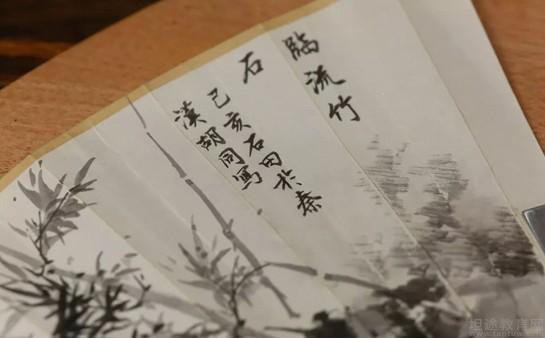 臨流竹
石
己亥石田於秦
漢胡同寫
坦途教育网
www.tantuw.com